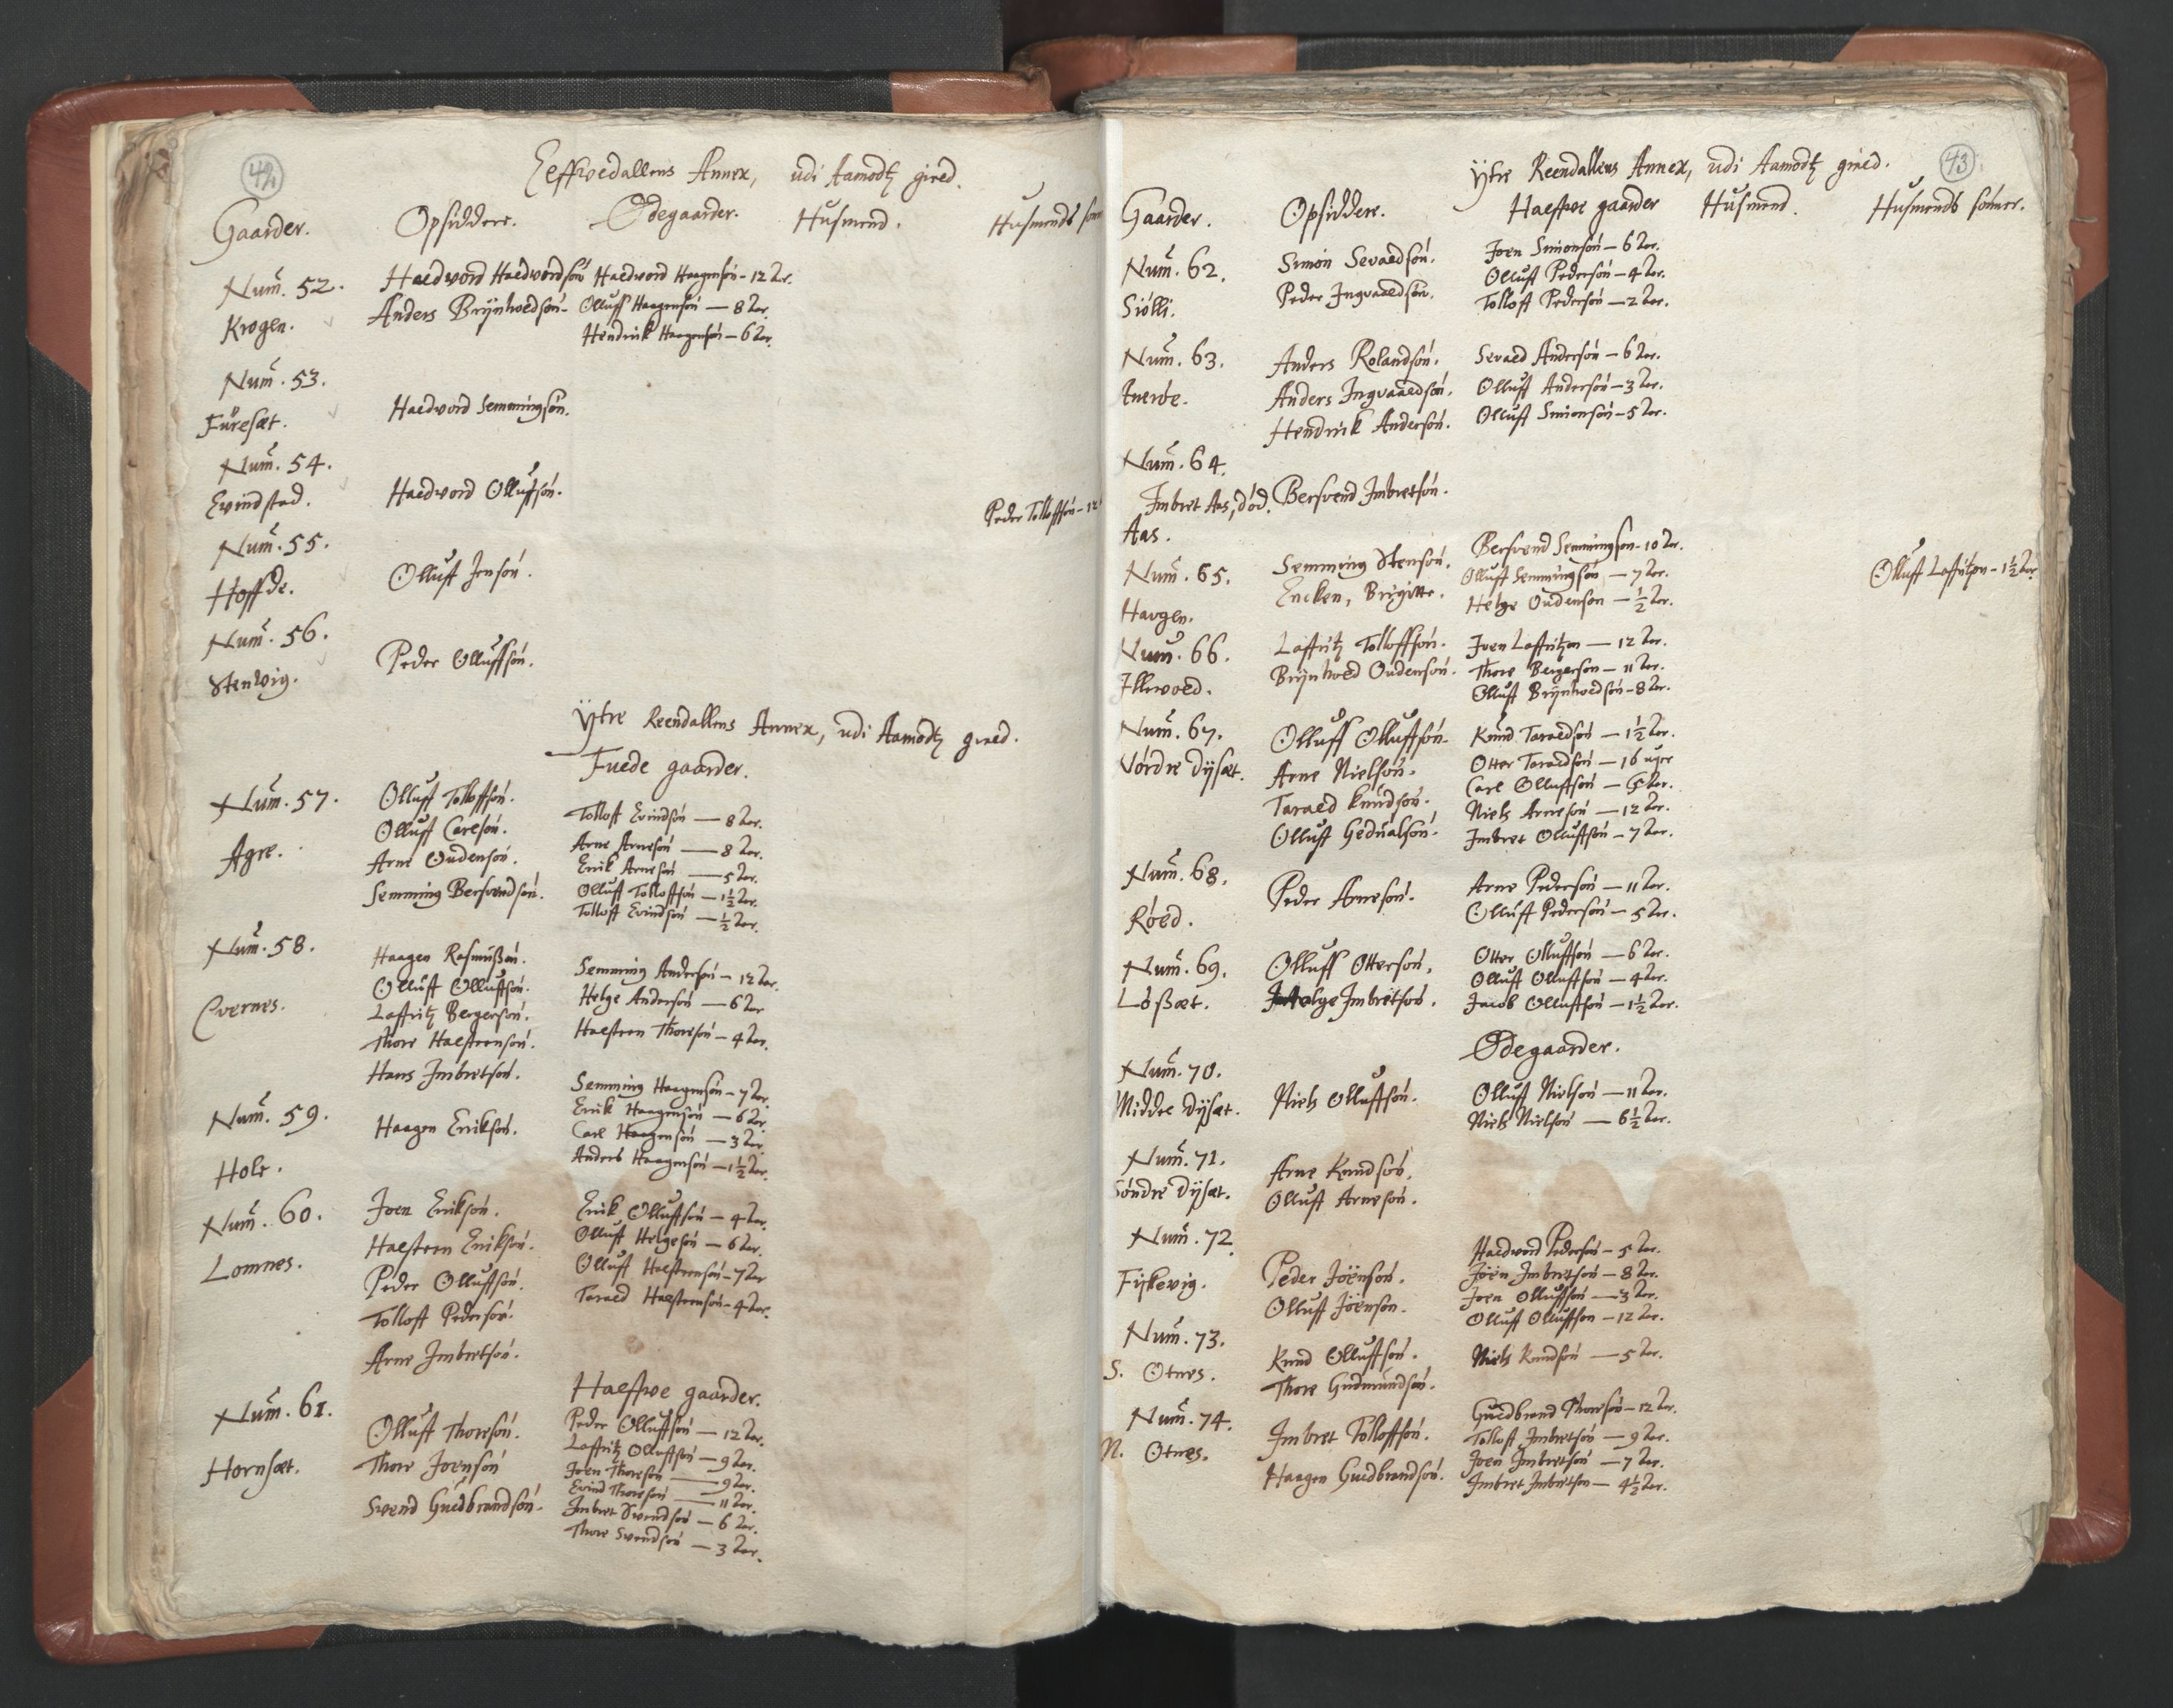 42
Eeffwedallens Annex, udi Aamodtz gield.
Gaarder. Opsiddere. Ødegaarder. Husmend. Husmends
Num. 52. Haldword Haldwordsøn Haldword Haagensøn - 12 Aar.
Krogen. Anders Brynholdsøn - Olluff Haagensøn — 8 Aar.
Hendrik Haagensøn — 6 Aar.
Num. 53.
Furesæt. Haldword Semmingsøn.
Num. 54.
Evindstad. Haldword Olluffsøn.
Peder Tolloffsøn - 12
Num. 55.
Hoffde. Olluff Jensøn.
Num. 56.
Stenvig. Peder Olluffsøn.
Ÿtre Reendallens Annex, udi Aamodtz gield.
Fuede gaarder.
Num. 57. Olluff Tolloffsøn. Tolloff Evindsøn — 8 Aar.
Olluff Carlsøn. Arne Arnesøn — 8 Aar.
Agre. Arne Oudensøn. Erik Arnesøn — 5 Aar.
Semming Bersvendsøn. Olluff Tolloffsøn — 1½ Aar.
Tolloff Evindsøn — ½ Aar.
Num. 58. Haagen Rasmußøn. Semming Andersøn — 12 Aar.
Olluff Olluffsøn. Helge Andersøn — 6 Aar
Qvernes. Laffritz Bergersøn. Halsteen Thoresøn — 4 Aar.
Thore Halsteensøn.
Hans Imbretsøn.
Num. 59. Haagen Eriksøn. Semming Haagensøn — 7 Aar.
Erik Haagensøn — 6 Aar.
Carl Haagensøn — 3 Aar.
Hole. Anders Haagensøn — 1½ Aar.
Num. 60. Joen Eriksøn. Erik Olluffsøn — 4 Aar.
Halsteen Eriksøn. Olluff Helgesøn — 6 Aar.
Lomnes. Peder Olluffsøn. Olluff Halsteensøn — 7 Aar
Tolloff Pedersøn. Tarald Halsteensøn — 4 Aar.
Arne Imbretsøn.
Halffwe gaarder.
Num. 61. Olluff Thoresøn. Peder Olluffsøn — 12 Aar.
Laffritz Olluffsøn — 9 Aar.
Hornsæt. Thore Joensøn Joen Thoresøn — 9 Aar.
Evind Thoresøn — 11 Aar.
Svend Guldbrandsøn. Imbret Svendsøn — 6 Aar.
Thore Svendsøn — 3 Aar.
43
Ÿtre Reendallens Annex, udi Aamodtz gield.
Gaarder. Opsiddere. Halffwe gaarder Husmend. Husmends sønner.
Num. 62. Simon Sevaldsøn. Joen Simonsøn — 6 Aar.
Peder Ingvaaldsøn. Olluff Pedersøn — 4 Aar.
Siølli. Tolloff Pedersøn — 2 Aar.
Num. 63. Anders Rolandsøn. Sevald Andersøn — 6 Aar.
Anders Ingvaaldsøn. Olluff Andersøn — 3 Aar.
Hendrik Andersøn. Olluff Simonsøn — 5 Aar.
Num. 64.
Imbret Aas, død. Bersvend Imbretsøn.
Aas.
Num. 65. Semming Stensøn. Bersvend Semmingsøn - 10 Aar.
Encken, Brigitte. Olluff Semmingsøn — 7 Aar. Olluff Laffritzøn - 1½ Aar
Haugen. Helge Oudensøn — ½ Aar.
Num. 66. Laffritz Tolloffsøn. Joen Laffritzøn — 12 Aar.
Brynhoeld Oudensøn. Thore Bergersøn — 11 Aar.
Illevold. Olluff Brynholdsøn - 8 Aar.
Num. 67. Olluff Olluffsøn. Knud Taraldsøn — 1½ Aar.
Nordre Dÿsæt. Arne Nielsøn. Otter Taraldsøn — 16 uger
Tarald Knudsøn. Carl Olluffsøn — 5 Aar.
Niels Arnesøn — 12 Aar.
Olluff Gedualsøn. Imbret Olluffsøn — 7 Aar.
Num. 68. Peder Arnesøn. Arne Pedersøn — 11 Aar.
Røed. Olluff Pedersøn — 5 Aar.
Num. 69. Olluff Ottersøn. Otter Olluffsøn — 6 Aar.
Olluff Olluffsøn — 4 Aar.
Løßæt. Helge Imbretsøn. Jacob Olluffsøn — 1½ Aar.
Ødegaarder.
Num. 70. Olluff Nielsøn — 11 Aar.
Middel Dÿsæt. Niels Olluffsøn. Niels Nielsøn — 6½ Aar.
Num. 71. Arne Knudsøn.
Søndre Dÿsæt. Olluff Arnesøn.
Num. 72. Haldword Pedersøn — 5 Aar.
Fiskevig. Peder Joensøn. Joen Imbretsøn — 8 Aar.
Olluff Joensøn. Joen Olluffsøn — 3 Aar.
Olluff Olluffsøn — 12 Aar.
Num. 73. Knud Olluffsøn. Niels Knudsøn — 5 Aar.
S. Otnes. Thore Gudmundsøn.
Num. 74. Guldbrand Thoresøn — 12 Aar.
Imbret Tolloffsøn. Tolloff Imbretsøn — 9 Aar.
N. Otnes. Joen Imbretsøn — 7 Aar.
Haagen Guldbrandsøn. Imbret Imbretsøn — 4½ Aar.